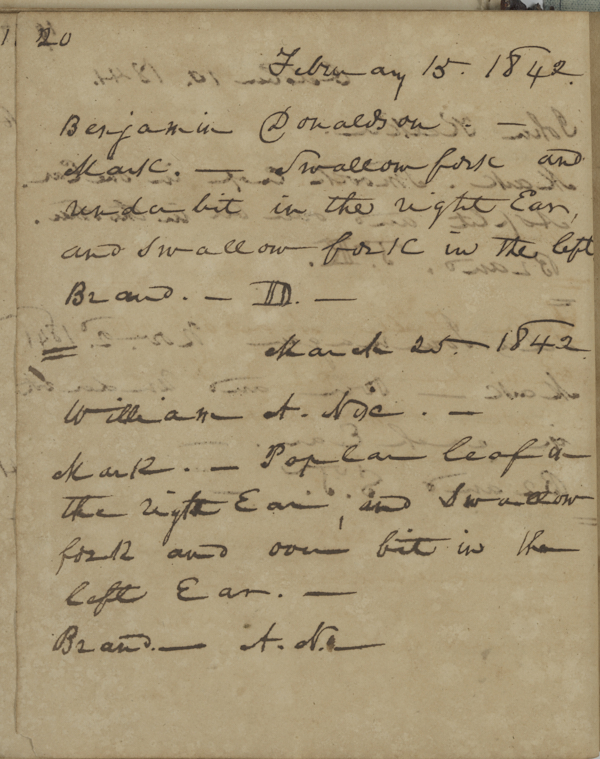 20
February 15. 1842.
Benjamin Donaldson. —
Mark. — Swallow fork and
under bit in the right Ear,
and Swallow fork in the left
Brand. — D. —
March 25. 1842
William A. Nix. —
Mark. — Poplar leaf in
the right Ear, and Swallow
fork and over bit in the
left Ear. —
Brand. — A. N. —